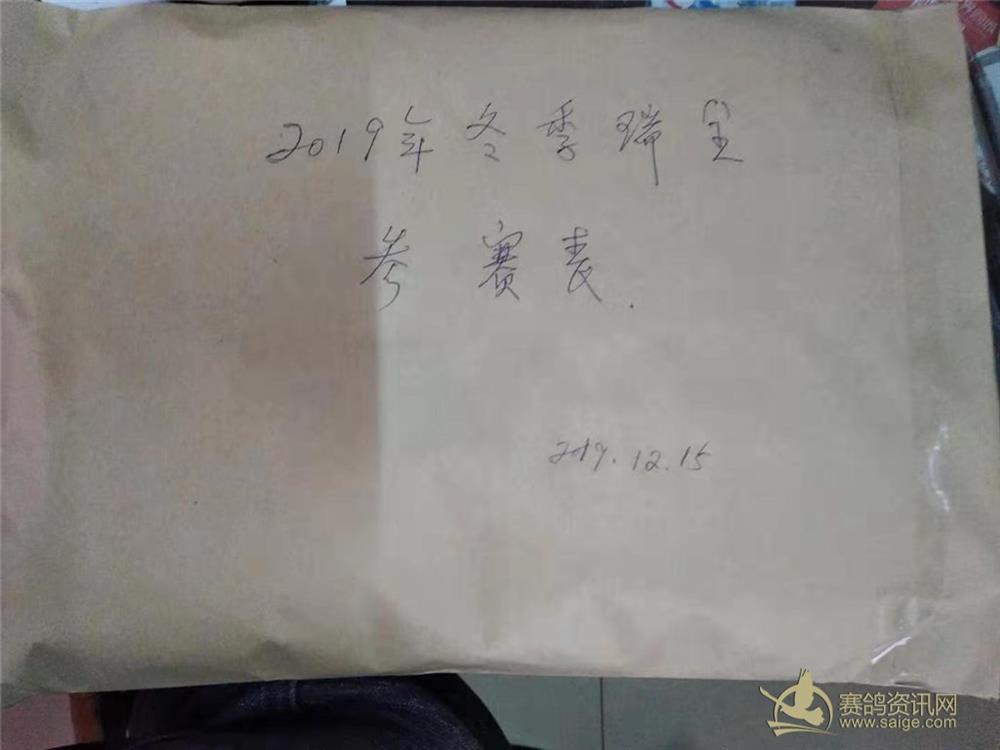 2019年冬季瑞全
参赛表.
2019.12.15
赛鸽资讯网
www.saige.com